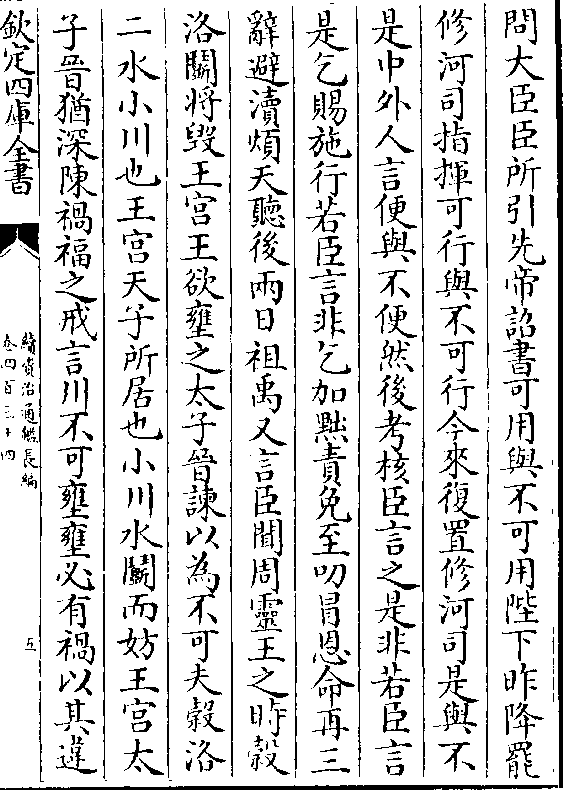 問大臣臣所引先帝詔書可用與不可用陛下昨降罷
修河司指揮可行與不可行今來復置修河司是與不
是中外人言便與不便然後考核臣言之是非若臣言
是乞賜施行若臣言非乞加黜責免至叨冒恩命再三
辭避瀆煩天聽後兩日祖禹又言臣聞周靈王之時穀
洛鬭將毀王宫王欲壅之太子晉諫以為不可夫穀洛
二水小川也王宫天子所居也小川水鬭而妨王宫太
子晉猶深陳禍福之戒言川不可壅壅必有禍以其違
欽定四庫全書
續資治通鑑長編
卷四百三十四
五